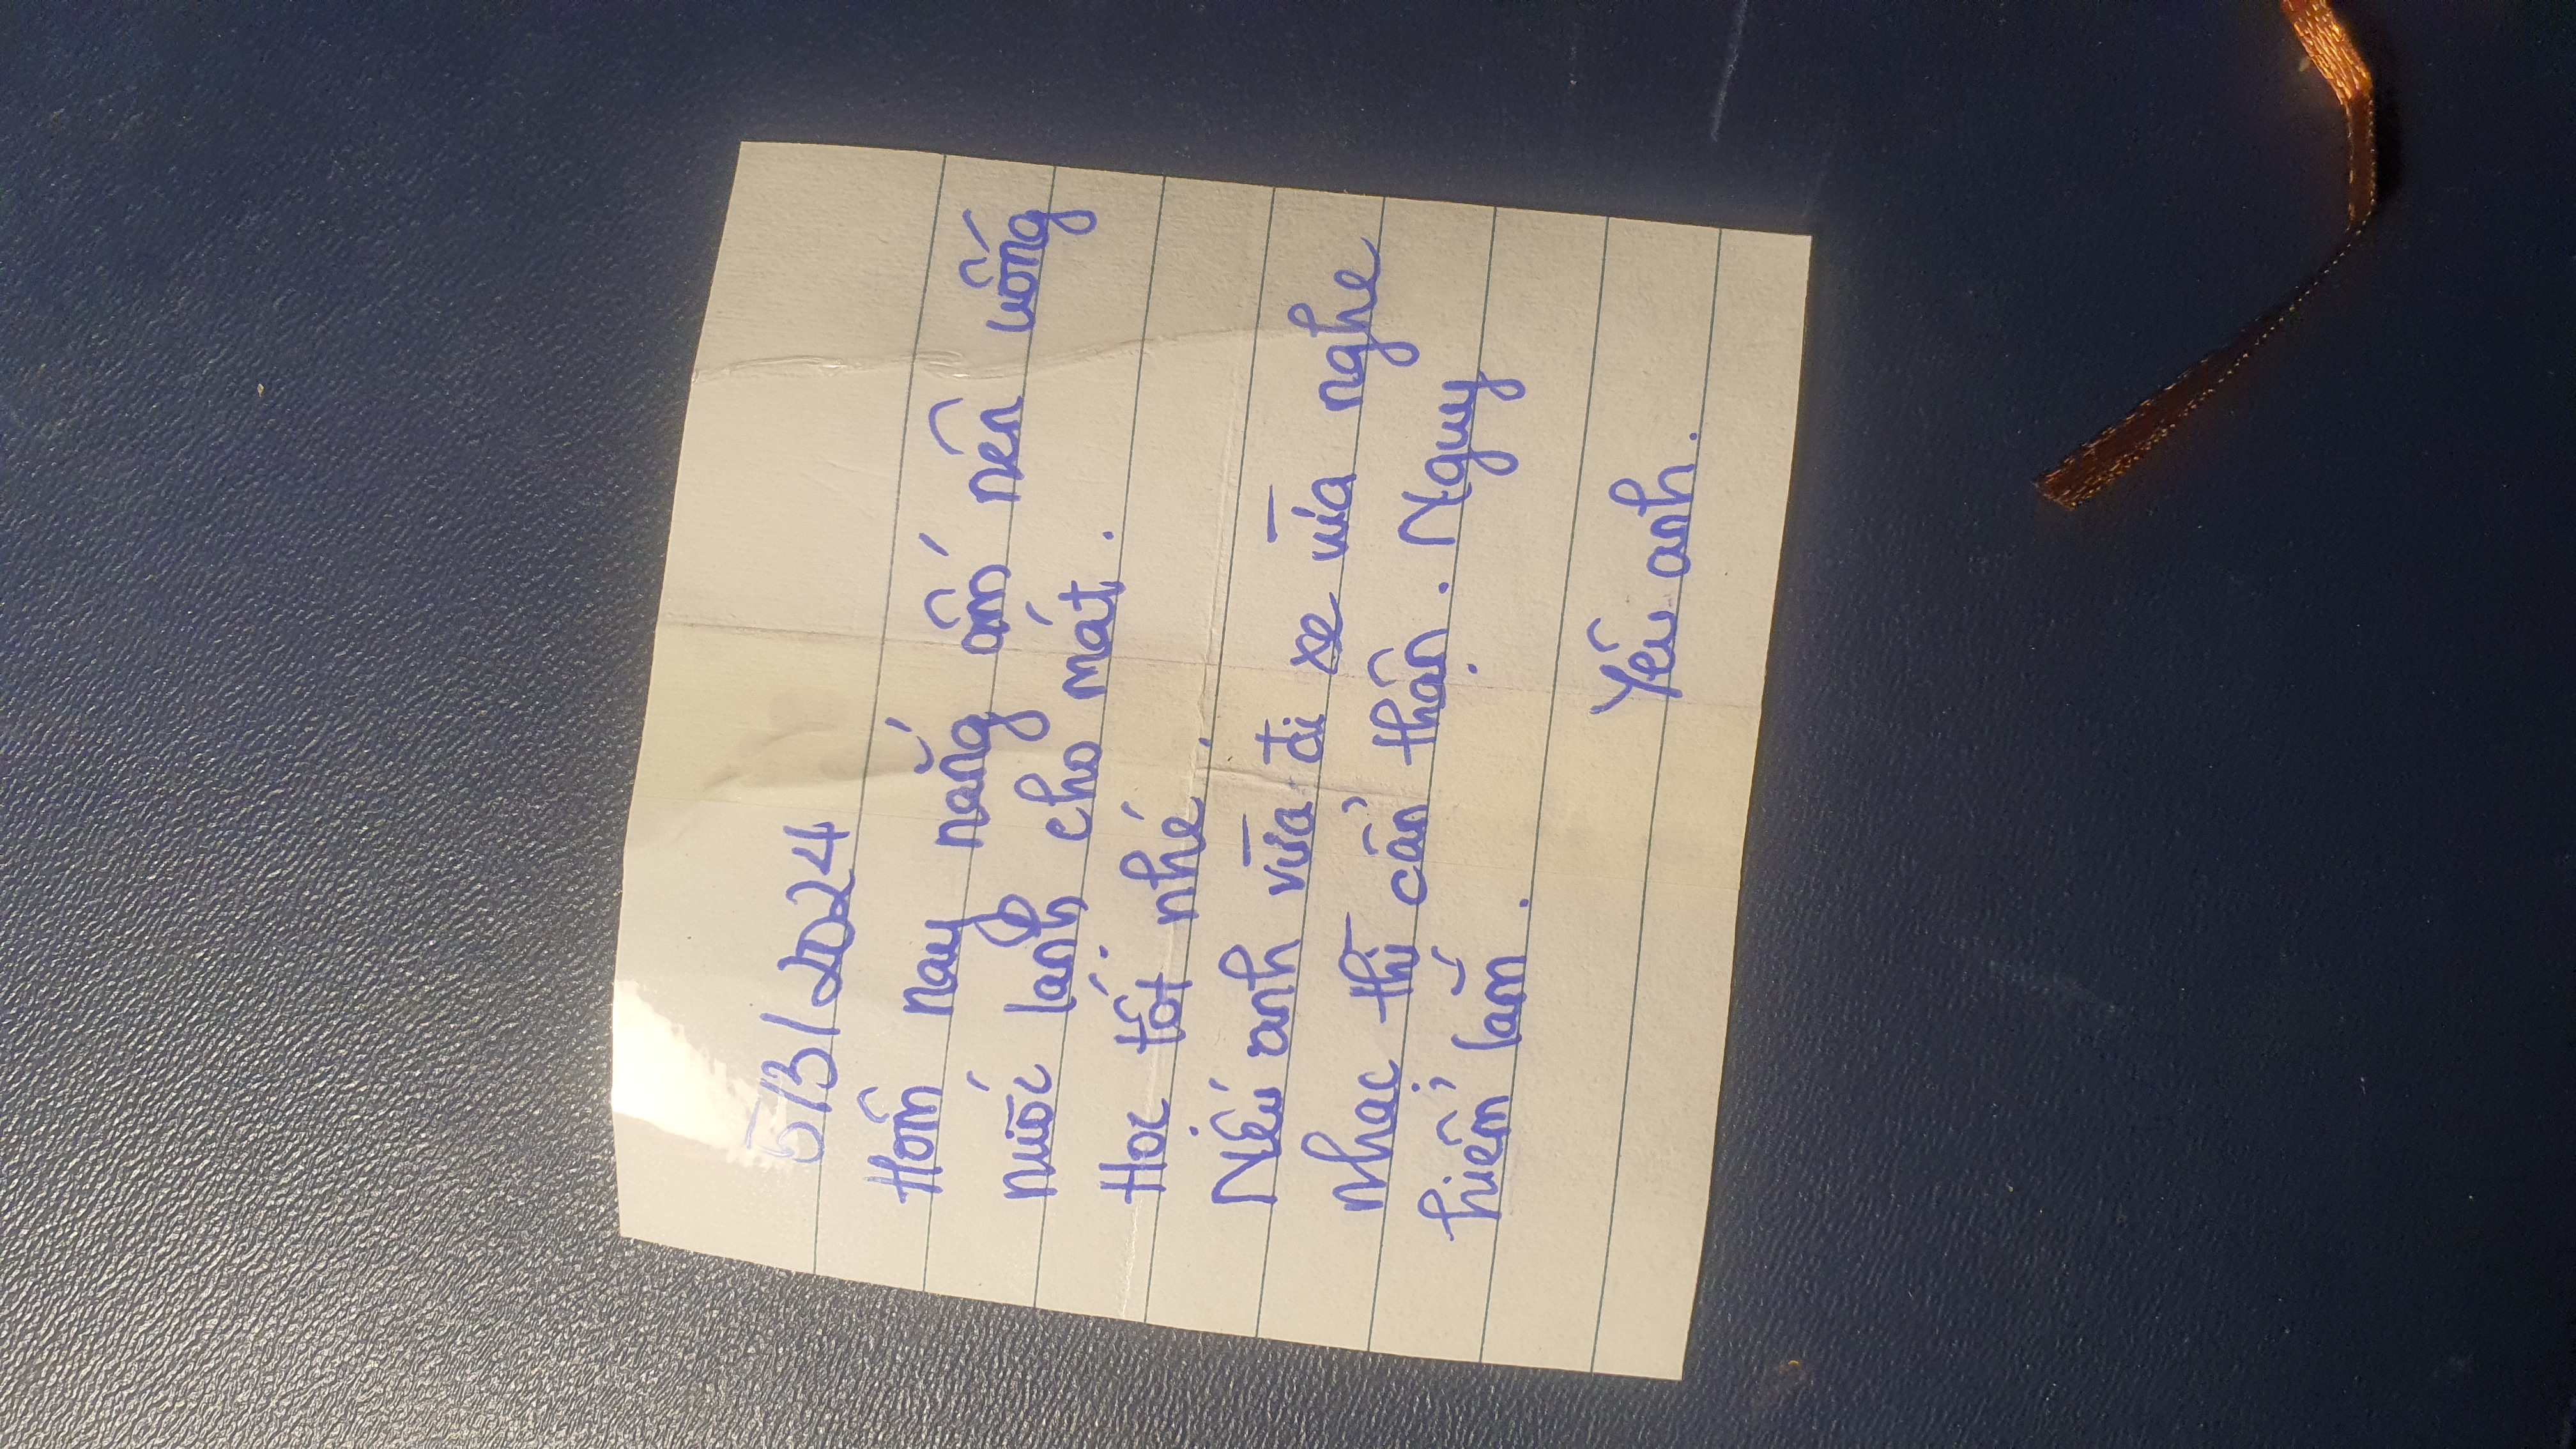 5/3/2024
Hôm nay nắng ấm nên uống
nước lạnh cho mát.
Học tốt nhé.
Nếu anh vừa đi xe vừa nghe
nhạc thì cẩn thận. Nguy
hiểm lắm.
Yêu anh.